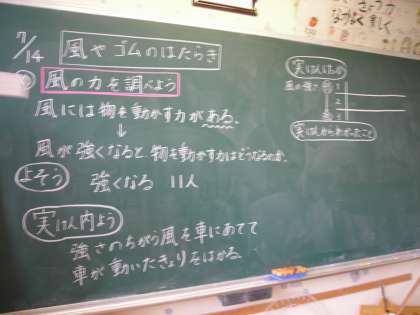 7/14
風やゴムのはたらき
風の力を調べよう
風には物を動かす力がある。
↓
風が強くなると物を動かす力はどうなるのか。
よそう 強くなる 11人
実けん内よう
強さのちがう風を車にあてて
車が動いたきょりをはかる。
実けんけっか
風の強さ
1
2
実けんからわかったこと